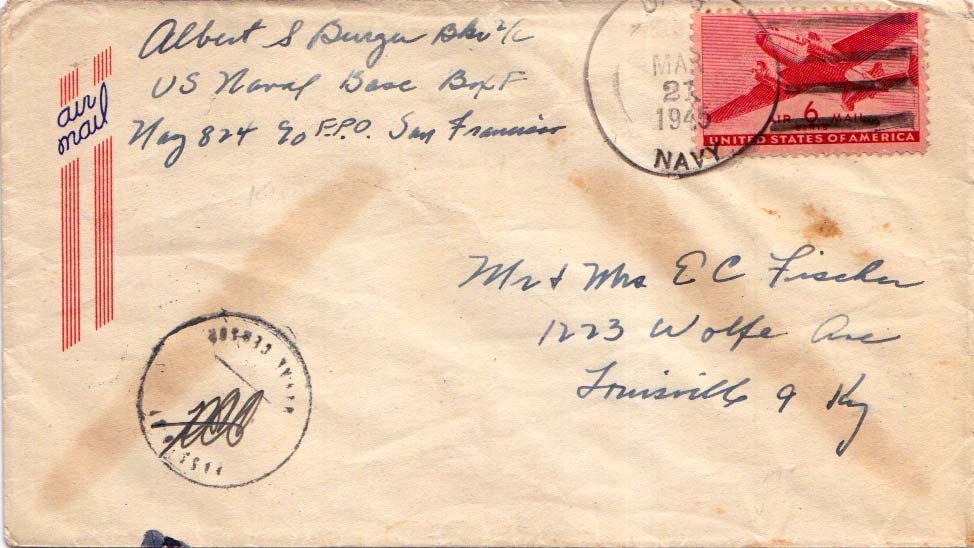 Albert S Burger Bkr 2/C
US Naval Base Box F
Navy 824 c/o F.P.O. San Francisco
air
mail
U.S.
MAR
21
1945
NAVY
AIR 6 MAIL
CENTS
UNITED STATES OF AMERICA
Mr & Mrs E C Fischer
1223 Wolfe Ave
Louisville 9 Ky
PASSED BY
NAVAL CENSOR